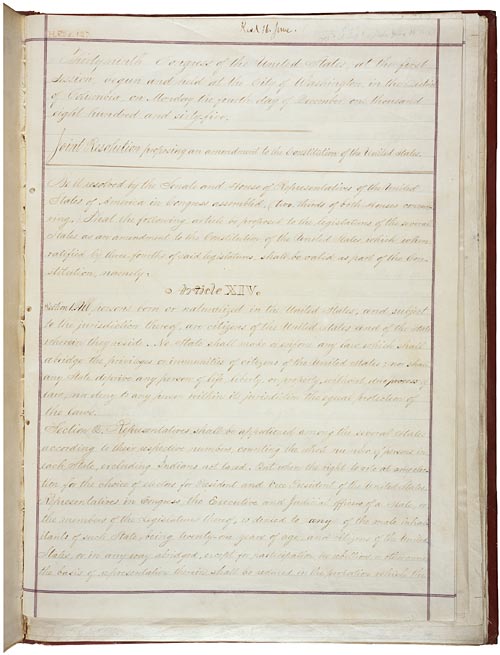 H. Res. 127
Rec'd 16 June.
Thirty-ninth Congress of the United States, at the first
Session, begun and held at the City of Washington, in the District
of Columbia, on Monday the fourth day of December, one thousand
eight hundred and sixty-five.
Joint Resolution proposing an amendment to the Constitution of the United States.
Be it resolved by the Senate and House of Representatives of the United
States of America in Congress assembled, (two thirds of both Houses concur-
ring,) That the following article be proposed to the legislatures of the several
States as an amendment to the Constitution of the United States, which, when
ratified by three fourths of said legislatures, shall be valid as part of the Con-
stitution, namely:
Article XIV.
Section 1. All persons born or naturalized in the United States, and subject
to the jurisdiction thereof, are citizens of the United States and of the State
wherein they reside. No State shall make or enforce any law which shall
abridge the privileges or immunities of citizens of the United States; nor shall
any State deprive any person of life, liberty, or property, without due process of
law; nor deny to any person within its jurisdiction the equal protection of
the laws.
Section 2. Representatives shall be apportioned among the several States
according to their respective numbers, counting the whole number of persons in
each State, excluding Indians not taxed. But when the right to vote at any elec-
tion for the choice of electors for President and Vice President of the United States,
Representatives in Congress, the Executive and Judicial officers of a State, or
the members of the Legislature thereof, is denied to any of the male inhabi-
tants of such State, being twenty-one years of age, and citizens of the United
States, or in any way abridged, except for participation in rebellion or other crime,
the basis of representation therein shall be reduced in the proportion which the